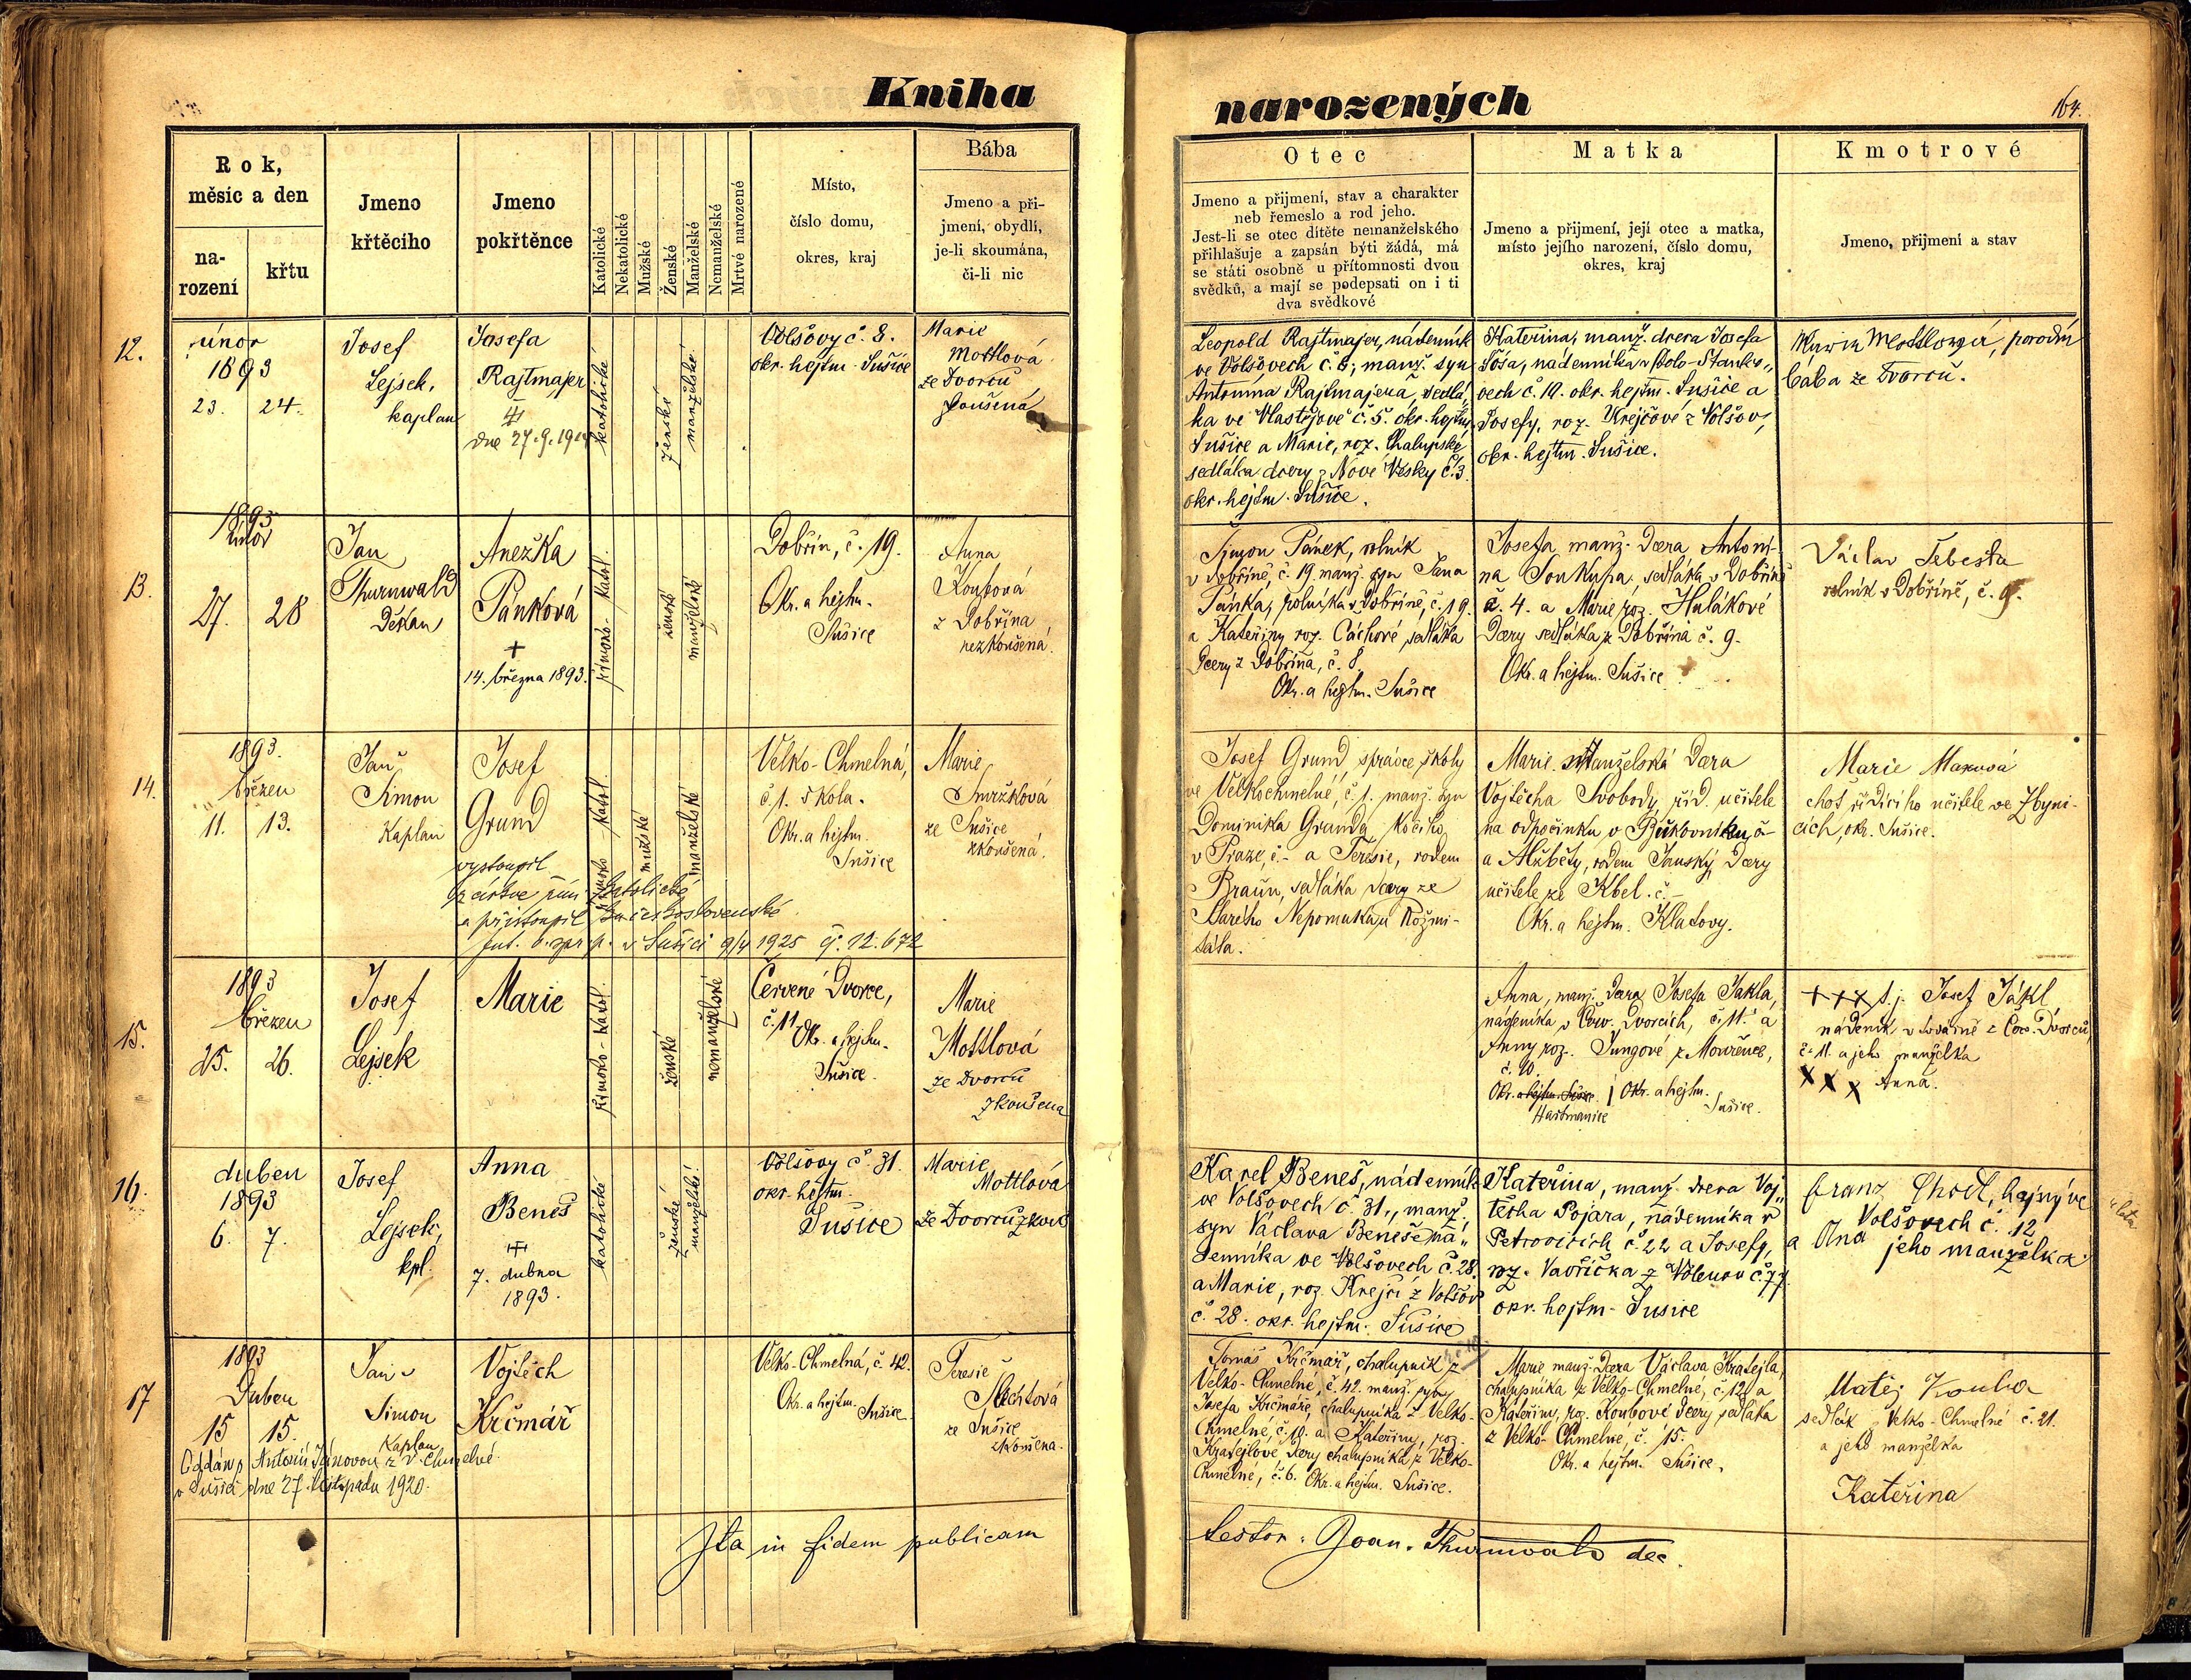 Kniha
narozených
164.
Rok,
měsíc a den
na-
rození
křtu
Jmeno
křtěcího
Jmeno
pokřtěnce
Katolické
Nekatolické
Mužské
Ženské
Manželské
Nemanželské
Mrtvé narozené
Místo,
číslo domu,
okres, kraj
Bába
Jmeno a při-
jmení, obydlí,
je-li skoumána,
či-li nic
Otec
Jmeno a přijmení, stav a charakter
neb řemeslo a rod jeho.
Jest-li se otec dítěte nemanželského
přihlašuje a zapsán býti žádá, má
se státi osobně u přítomnosti dvou
svědků, a mají se podepsati on i ti
dva svědkové
Matka
Jmeno a přijmení, její otec a matka,
místo jejího narození, číslo domu,
okres, kraj
Kmotrové
Jmeno, přijmení a stav
12.
únor
1893
23. 24.
Josef
Lejsek,
kaplan
Josefa
Rajtmajer
dne 27.9.
katolické
ženské
manželské
Volšovy č. 8.
okr. hejtm. Sušice
Marie
Mottlová
ze Dvorců
Leopold Rajtmajer, nádenník
ve Volšovech č. 8; manž. syn
Antonína Rajtmajera, sedlá-
ka ve Vlastějově č. 5. okr. hejtm.
Sušice a Marie, roz. Chalupské
sedláka dcery z Nové Vésky č. 3.
okr. hejtm. Sušice.
Kateřina, manž. dcera Josefa
nádenníka v
vech č. 19. okr. hejtm. Sušice a
Josefy, roz. Krejčové z Volšov,
okr. hejtm. Sušice.
Marie Mottlová, porodní
bába ze Dvorců.
13.
1893
únor
27. 28
Jan
Thurnwald
Děkan
Anežka
Pánková
+
14. března 1893.
římsko-katol.
ženské
manželské
Dobřín, č. 19.
Okr. a hejtm.
Sušice
Anna
Koubová
z Dobřína
nezkoušená.
Šimon Pánek, rolník
v Dobříně, č. 19. manž. syn Jana
Pánka, rolníka v Dobříně, č. 19.
a Kateřiny roz. Cáchové, sedláka
dcery z Dobřína, č. 8.
Okr. a hejtm. Sušice
Josefa manž. dcera Antoní-
na Soukupa, sedláka v Dobříně
č. 4. a Marie roz. Hulákové
dcery sedláka z Dobřína č. 9.
Okr. a hejtm. Sušice
Václav Šebesta
rolník v Dobříně, č. 9.
14.
1893.
březen
11. 13.
Jan
Šimon
Kaplan
Josef
Grund
vystoupil
z církve řím. katolické
a přistoupil k československé
v Sušici 9/4 1925 čj. 12.672
římsko katol.
mužské
manželské
Velko-Chmelná,
č. 1. škola.
Okr. a hejtm.
Sušice
Marie
Smržková
ze Sušice
zkoušená.
Josef Grund správce školy
ve Velkochmelné, č. 1. manž. syn
Dominika Grunda, kočího
v Praze, č. - a Terésie, rodem
Braun, sedláka dcery ze
Starého Nepomuka u Rožmi-
tála.
Marie manželská dcera
Vojtěcha Svobody, říd. učitele
na odpočinku v Bukovníku č -
a Alžběty, rodem Janský, dcery
učitele ze Kbel. č. -
Okr. a hejtm. Klatovy.
Marie Maxová
choť řídícího učitele ve Zbyni-
cích, okr. Sušice.
15.
1893
březen
25. 26.
Josef
Lejsek
Marie
římsko-katol.
ženské
nemanželské
Červené Dvorce,
č. 11
Okr. a hejtm.
Sušice.
Marie
Mottlová
ze Dvorců
zkoušená
Anna, manž. dcera Josefa Jákla,
nádeníka v Červ. Dvorcích, č. 11. a
Anny roz. Jungové z Mouřence,
č. 10.
Okr. a hejtm. Sušice. / Okr. a hejtm.
Hartmanice Sušice.
+++ s. j. Josef Jákl,
nádeník v továrně z Červ. Dvorců,
č. 11. a jeho manželka
XXX Anna.
16.
duben
1893
6. 7.
Josef
Lejsek,
kpl.
Anna
Beneš
7. dubna
1893.
katolické
ženské
manželské
Volšovy č 31.
okr. hejtm.
Sušice
Marie
Mottlová
ze Dvorců zkouš
Karel Beneš, nádenník
ve Volšovech č 31., manž.
syn Václava Beneše ná-
denníka ve Volšovech č. 28.
a Marie, roz. Krejčí z Volšov
č. 28. okr. hejtm. Sušice
Kateřina, manž. dcera Voj-
těcha Pojara, nádenníka v
Petrovicích č. 22 a Josefy,
roz. Vavřička z Volenov č. 77.
okr. hejtm. Sušice
Franz hajný ve
Volšovech č. 12
a Ana jeho manželka
17
1893
Duben
15 15.
Jan
Šimon
Kaplan
Vojtěch
Krčmář
Oddán s Antonií Jánovou z V. Chmelné
v Sušici dne 27. listopadu 1920.
Velko-Chmelná, č. 42.
Okr. a hejtm. Sušice
Teresie
Šlechtová
ze Sušice
zkoušena.
Tomáš Krčmář, chalupník z
Velko-Chmelné, č. 42. manž. syn
Josefa Krčmáře, chalupníka z Velko-
Chmelné, č. 19. a Kateřiny, roz.
Kratejlové, dcery chalupníka z Velko-
Chmelné, č. 6. Okr. a hejtm. Sušice.
Marie manž. dcera Václava Kratejla,
chalupníka z Velko-Chmelné, č. 12. a
Kateřiny, roz. Koubové dcery sedláka
z Velko-Chmelné, č. 15.
Okr. a hejtm. Sušice.
Matěj Kouba
sedlák z Velko-Chmelné č. 21.
a jeho manželka
Kateřina
Ita in fidem publicam
testor: Joan. Thurnwald dec.